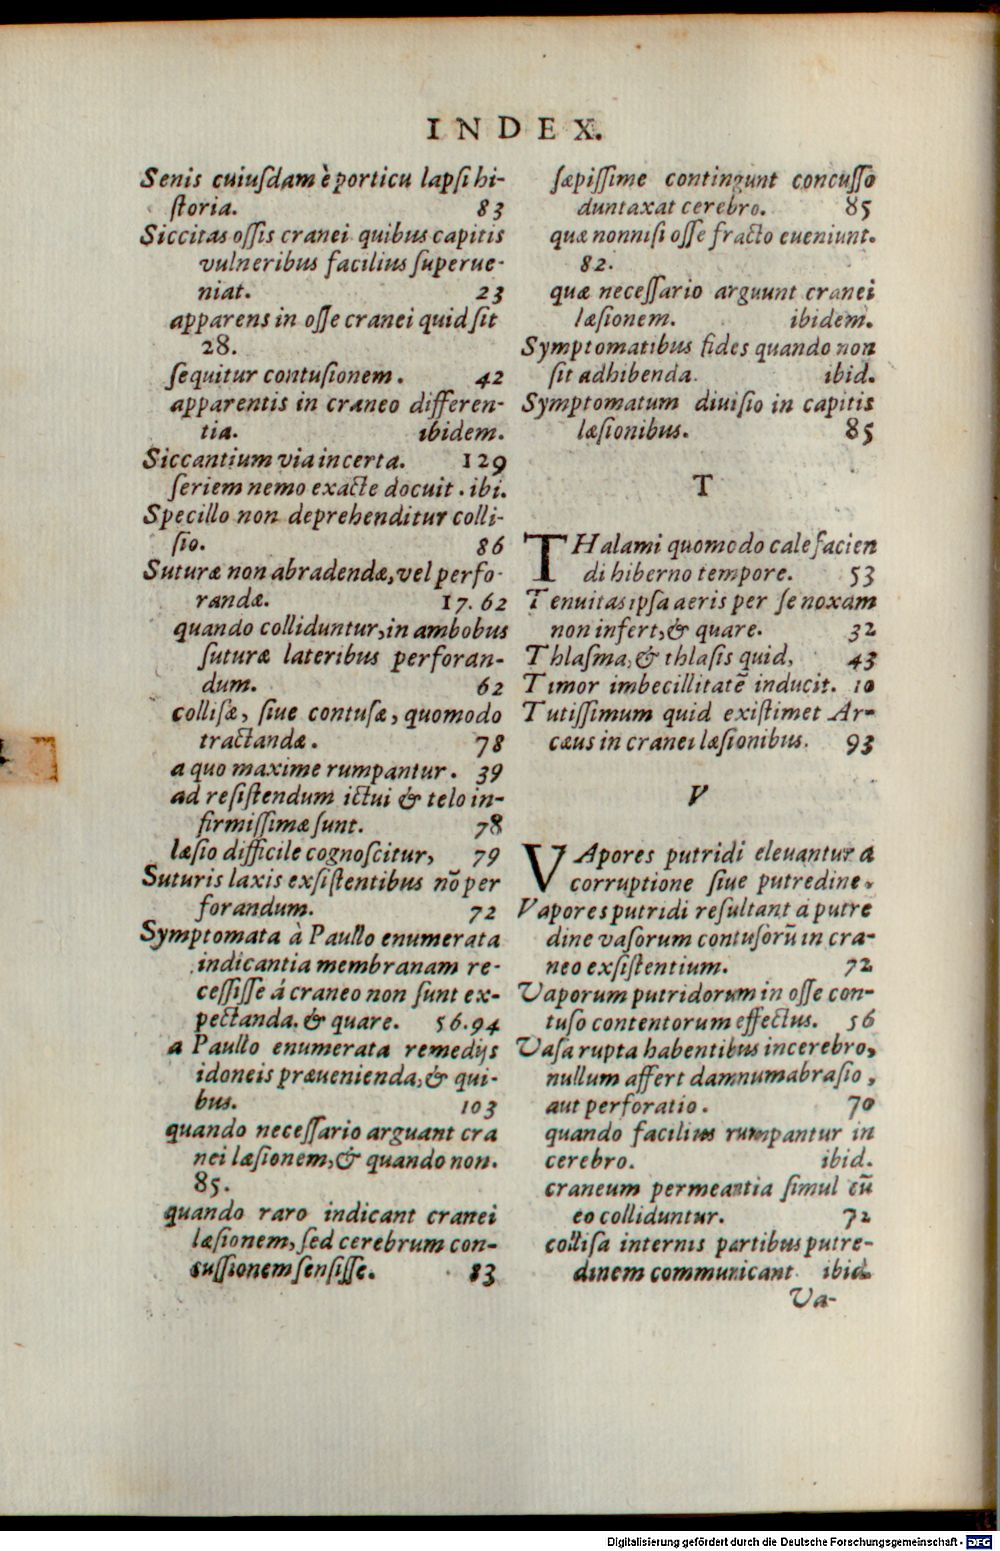 INDEX.
Senis cuiusdam è porticu lapsi hi-
storia. 83
Siccitas ossis cranei quibus capitis
vulneribus facilius superue-
niat. 23
apparens in osse cranei quid sit
28.
sequitur contusionem. 42
apparentis in craneo differen-
tia. ibidem.
Siccantium via incerta. 129
seriem nemo exacte docuit. ibi.
Specillo non deprehenditur colli-
sio. 86
Suturæ non abradendæ, vel perfo-
randæ. 17. 62
quando colliduntur, in ambobus
suturæ lateribus perforan-
dum. 62
collisæ, siue contusæ, quomodo
tractandæ. 78
a quo maxime rumpantur. 39
ad resistendum ictui & telo in-
firmissimæ sunt. 78
læsio difficile cognoscitur, 79
Suturis laxis exsistentibus nõ per
forandum. 72
Symptomata à Paullo enumerata
indicantia membranam re-
cessisse á craneo non sunt ex-
pectanda. & quare. 56.94
a Paullo enumerata remedijs
idoneis præuenienda, & qui-
bus. 103
quando necessario arguant cra
nei læsionem, & quando non.
85.
quando raro indicant cranei
læsionem, sed cerebrum con-
cussionem sensisse. 83
sæpissime contingunt concusso
duntaxat cerebro. 85
quæ nonnisi osse fracto eueniunt.
82.
quæ necessario arguunt cranei
læsionem. ibidem.
Symptomatibus fides quando non
sit adhibenda. ibid.
Symptomatum diuisio in capitis
læsionibus. 85
T
THalami quomodo calefacien
di hiberno tempore. 53
Tenuitas ipsa aeris per se noxam
non infert, & quare. 32
Thlasma, & thlasis quid, 43
Timor imbecillitatē inducit. 10
Tutissimum quid existimet Ar-
cæus in cranei læsionibus. 93
V
VApores putridi eleuantur a
corruptione siue putredine.
Vapores putridi resultant a putre
dine vasorum contusorū in cra-
neo exsistentium. 72
Vaporum putridorum in osse con-
tuso contentorum effectus. 56
Vasa rupta habentibus in cerebro,
nullum affert damnum abrasio,
aut perforatio. 70
quando facilius rumpantur in
cerebro. ibid.
craneum permeantia simul cū
eo colliduntur. 72
collisa internis partibus putre-
dinem communicant ibid.
Va-
Digitalisierung gefördert durch die Deutsche Forschungsgemeinschaft - DFG